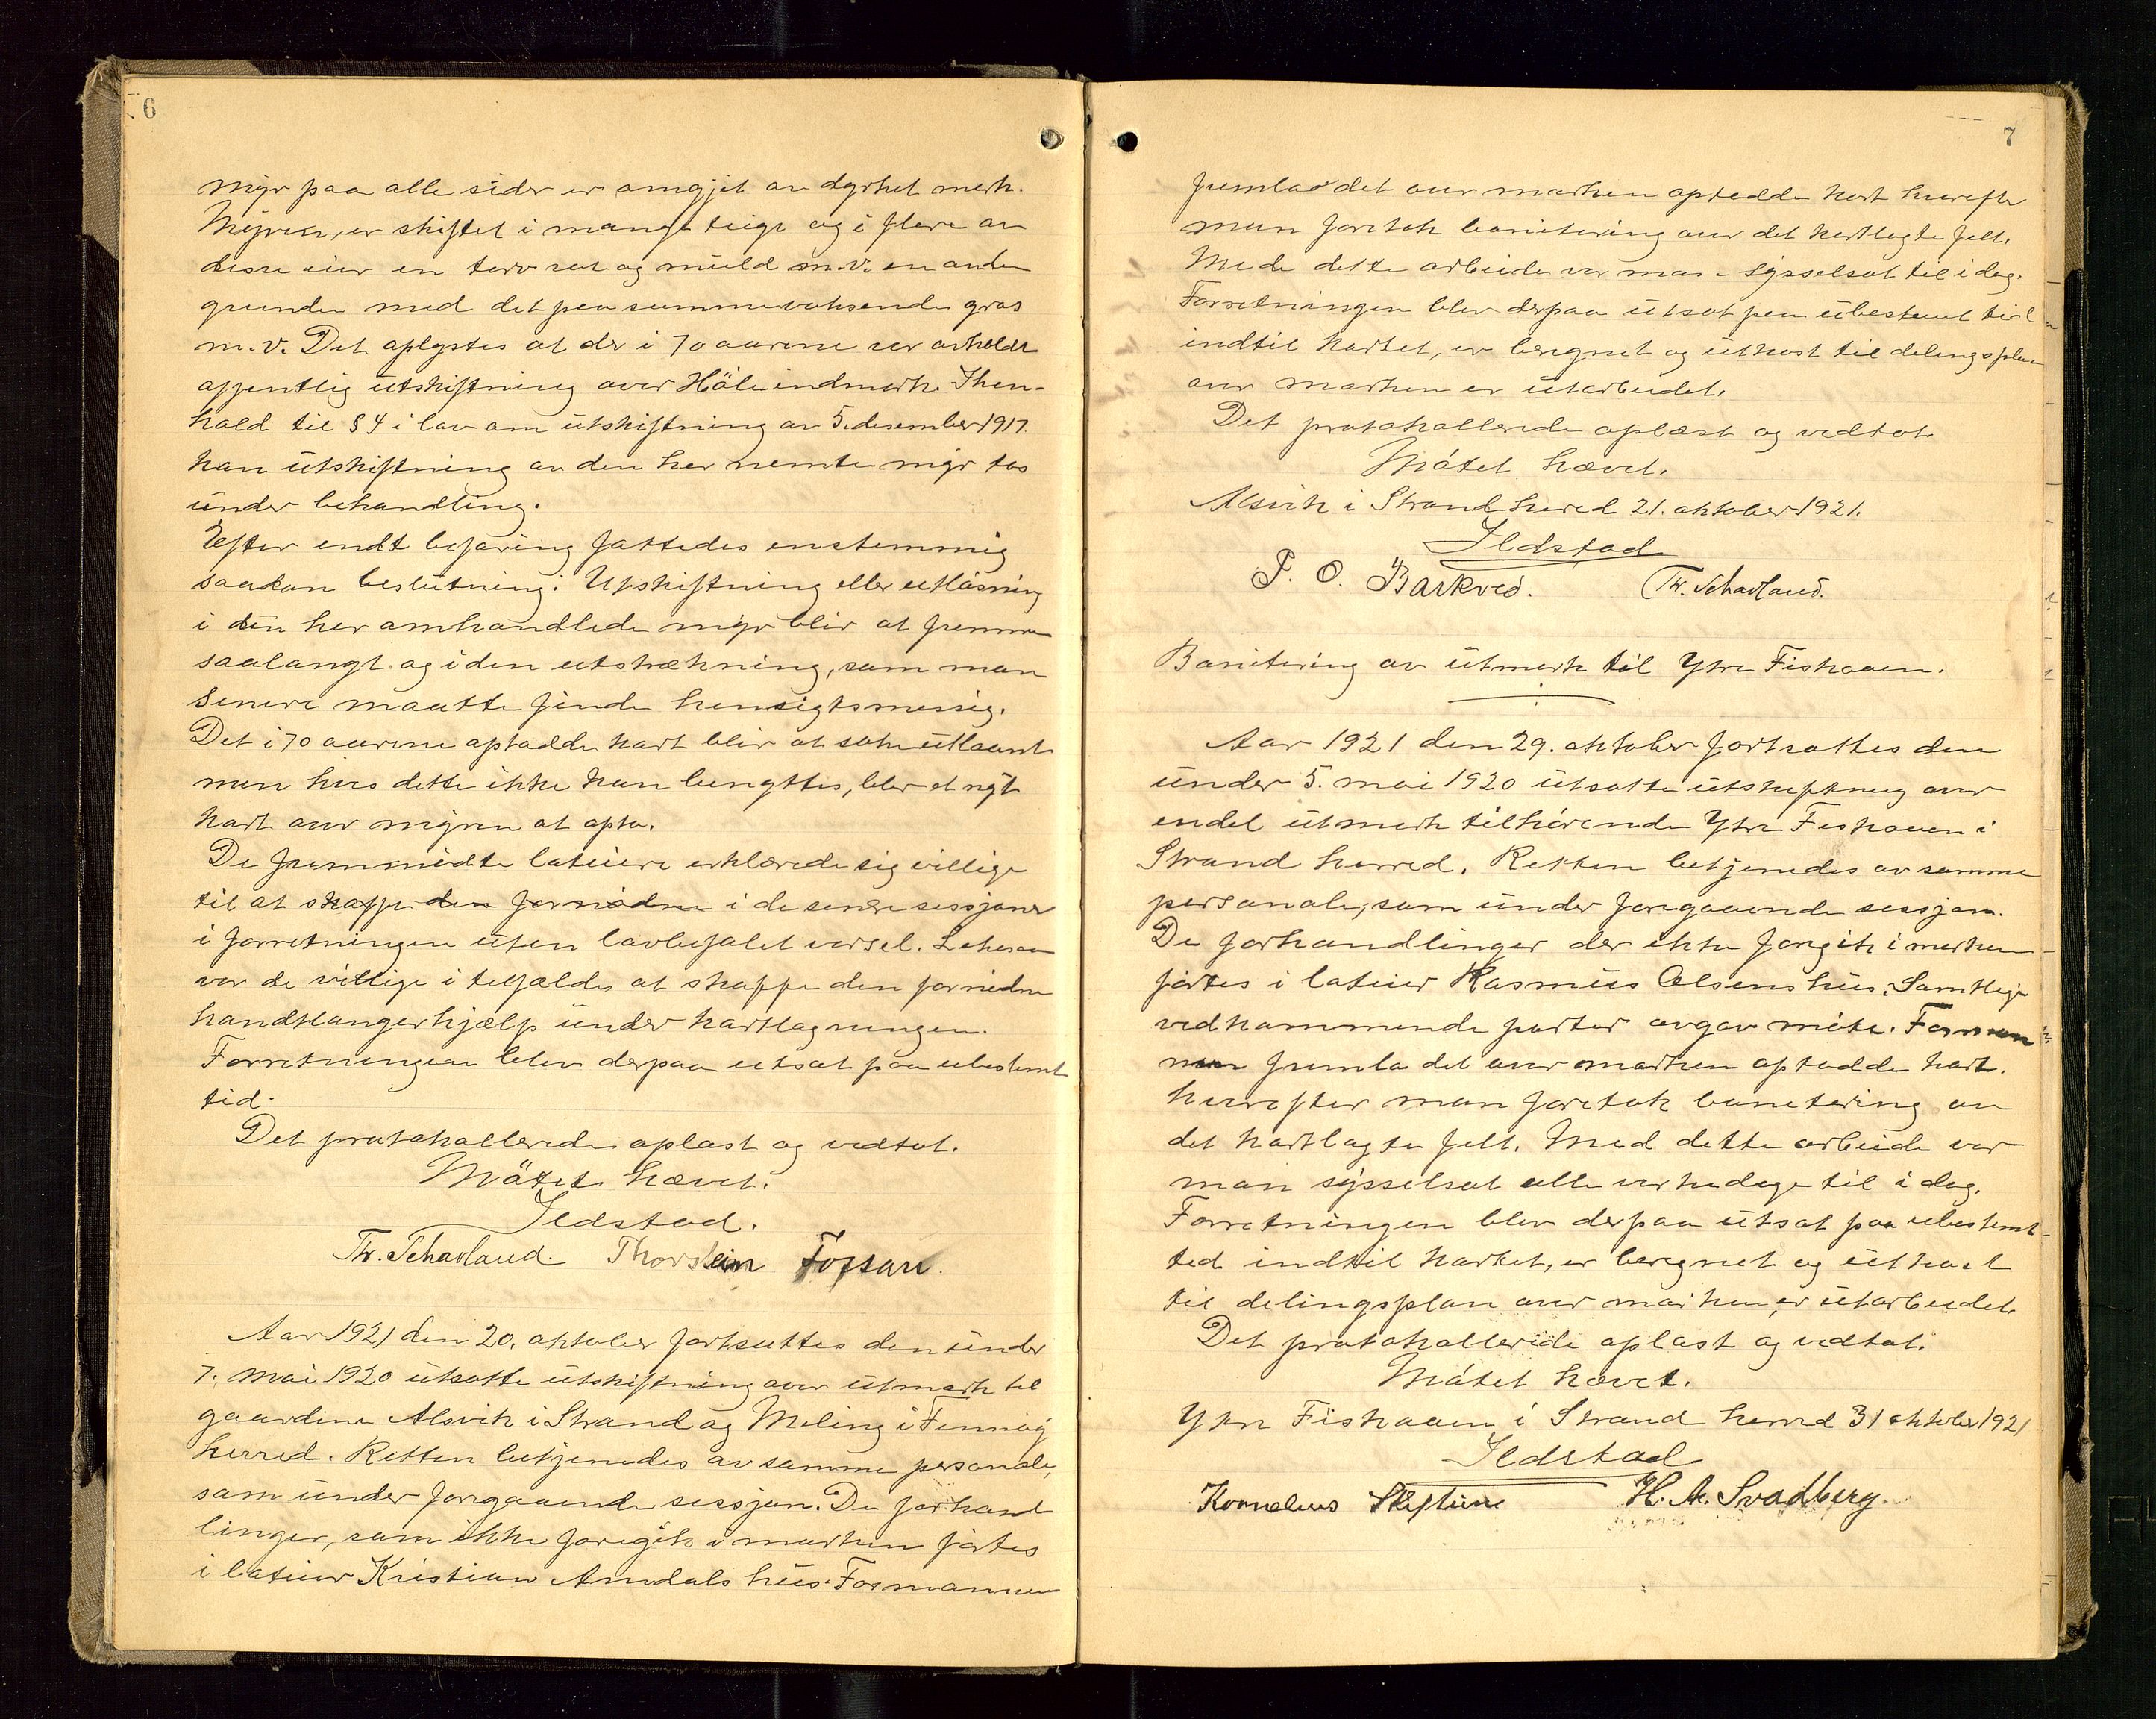 6
myr paa alle sider er omgjet av dyrket mark.
Myren, er skiftet i mange teige og i flere av
disse eier en torv ret og muld m.v. en anden
grunden med det paa sammevoksende gras
m.v. Det oplystes at der i 70 aarene var avholdt
offentlig utskiftning over Höle indmark. I hen-
hold til § 4 i lov om utskiftning av 5. desember 1917.
kan utskiftning av den her nemte myr tas
under behandling.
Efter endt befaring fattedes enstemmig
saadan beslutning: Utskiftning eller utlösning
i den her omhandlede myr blir at fremme
saalangt og i den utstrækning, som man
senere maatte finde hensigtsmessig.
Det i 70 aarene optadde kart blir at söke utlaant
men hvis dette ikke kan benyttes, blir et nyt
kart over myren at opta.
De fremmödte loteiere erklærede sig villige
til at skaffe den fornödne i de senere sessjoner
i forretningen uten lovbefalet varsel. Likesaa
var de villige i tilfælde at skaffe den fornödne
handtlangerhjælp under kartlagningen.
Forretningen blev derpaa utsat paa ubestemt
tid.
Det protokollerede oplæst og vedtat.
Mötet hævet.
Ildstad.
Th. Scharland. Thorstein Fossan.
Aar 1921 den 20. oktober fortsattes den under
7. mai 1920 utsatte utskiftning over utmark til
gaardene Alsvik i Strand og Meling i Fennöy
herred. Retten betjenedes av samme personale,
som under foregaaende sessjon. De forhand
linger, som ikke foregik i marken förtes
i loteier Kristian Amdals hus. Formannen
7
fremla det over marken optadde kart hvorefter
man foretok bonitering over det kartlagte felt.
Mede dette arbeide var man sysselsat til i dag.
Forretningen blev derpaa utsat paa ubestemt tid
indtil kartet, er beregnet og utkast til delingsplan
over marken er utarbeidet.
Det protokollerede oplæst og vedtat.
Mötet hævet.
Alsvik i Strand herred 21. oktober 1921.
Ildstad
P. O. Barkved. Th. Scharland.
Bonitering av utmark til Ytre Fiskaaen.
Aar 1921 den 29. oktober fortsattes den
under 5. mai 1920 utsatte utskiftning over
endel utmark tilhörende Ytre Fiskaaen i
Strand herred. Retten betjenedes av samme
personale, som under foregaaende sessjon.
De forhandlinger der ikke foregik i marken
förtes i loteier Rasmus Olsens hus. Samtlige
vedkommende parter avgav möte. Forman
nen fremla det over marken optadde kart.
hvorefter man foretok bonitering av
det kartlagte felt. Med dette arbeide var
man sysselsat alle virkedage til i dag.
Forretningen blev derpaa utsat paa ubestemt
tid indtil kartet, er beregnet og utkast
til delingsplan over marken, er utarbeidet.
Det protokollerede oplæst og vedtat.
Mötet hævet.
Ytre Fiskaaen i Strand herred 31 oktober 1921
Ildstad
Kornelius Skeftune H. A. Svadberg.